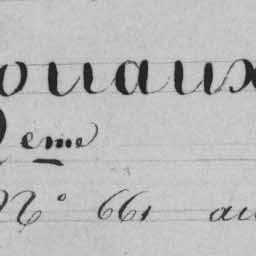 ouaux
2eme
N° 661 au